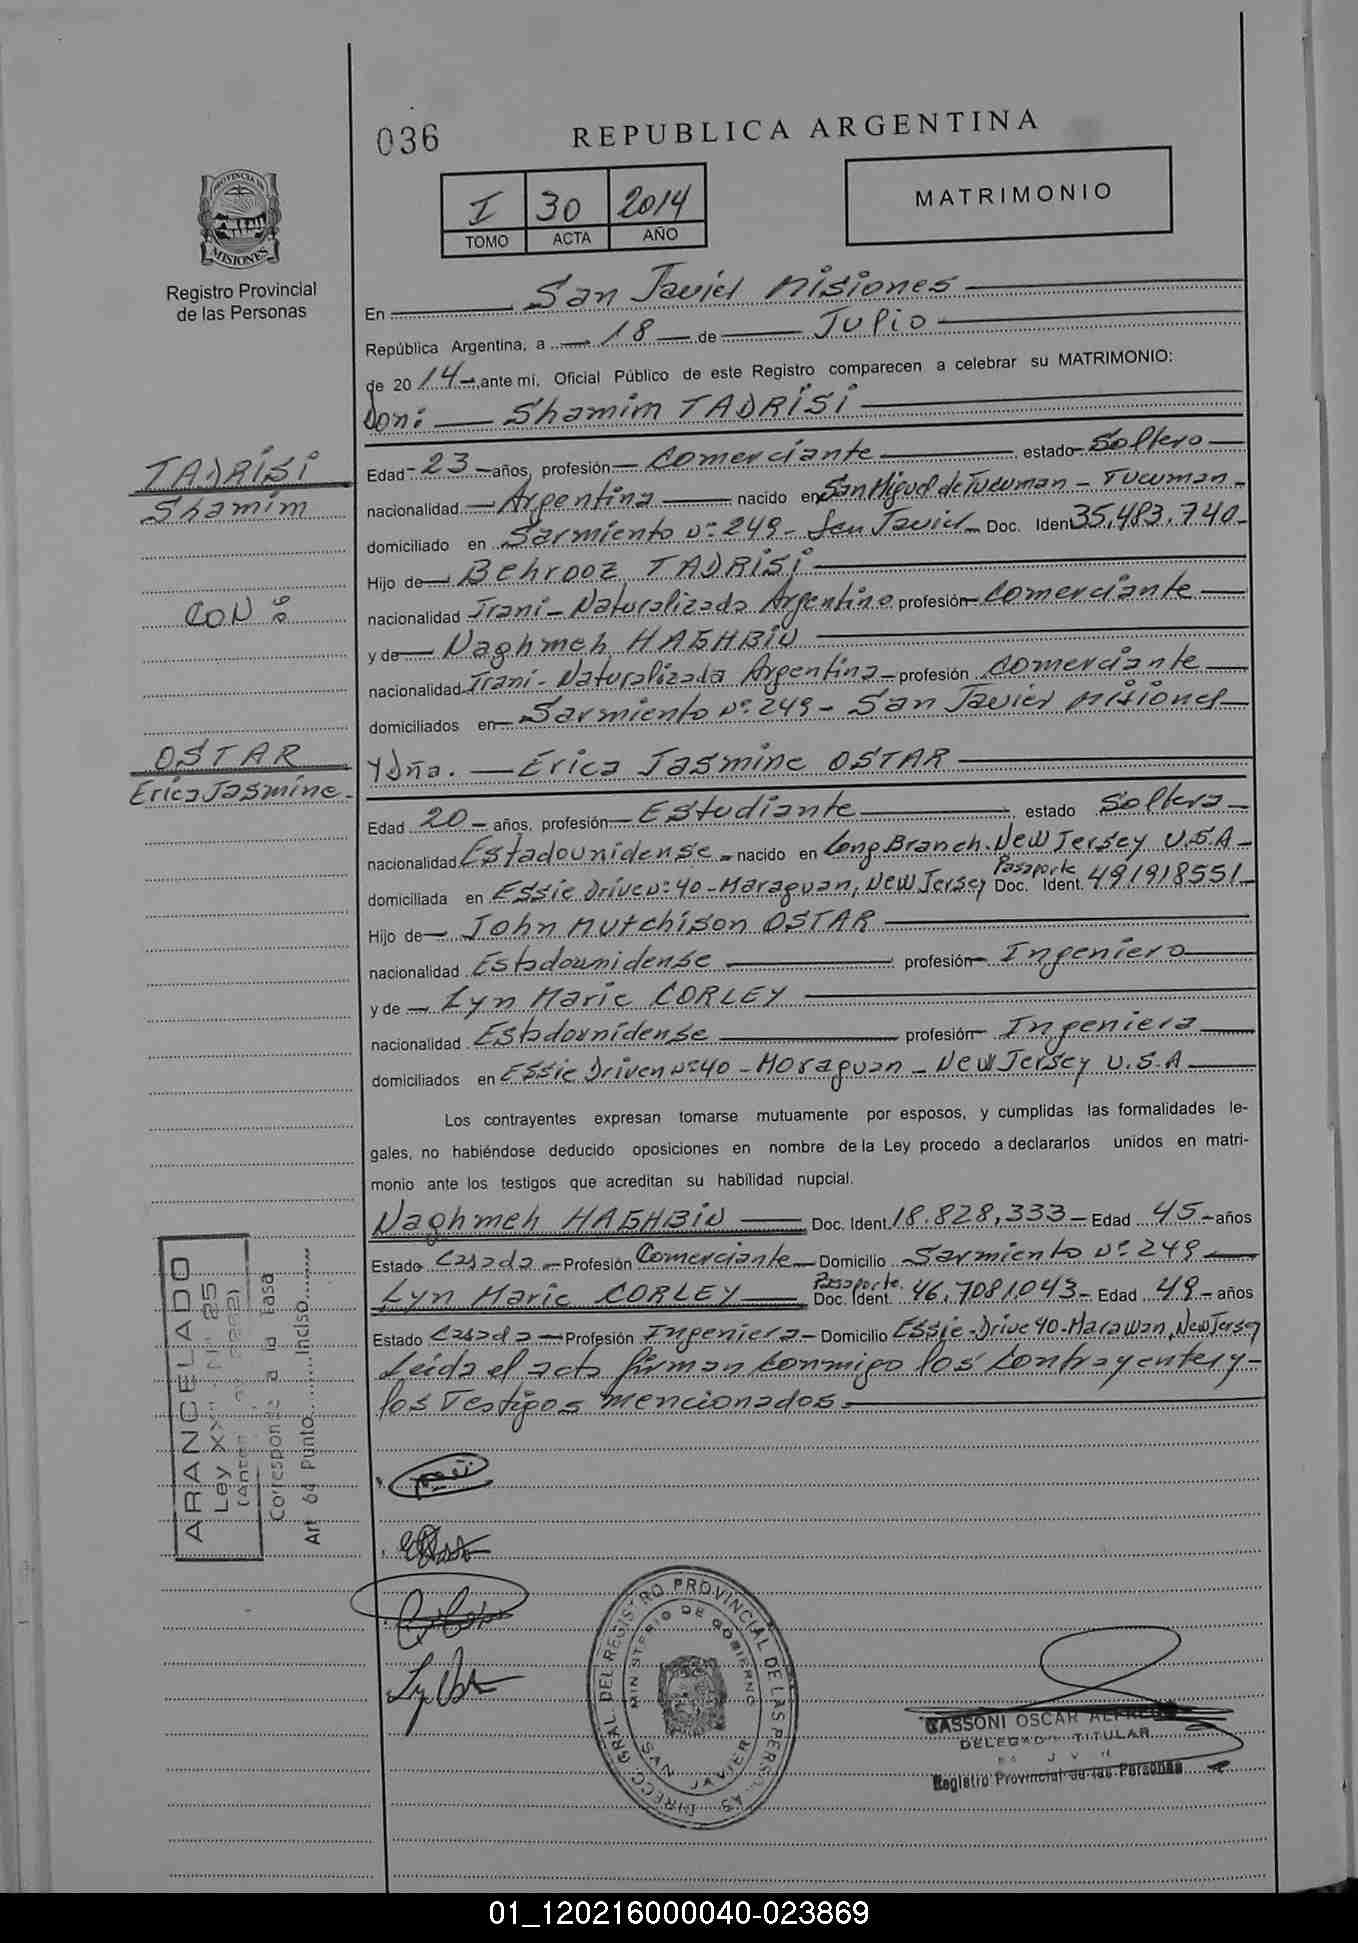 036
REPUBLICA ARGENTINA
I 30 2014
TOMO ACTA AÑO
MATRIMONIO
PROVINCIA DE
MISIONES
Registro Provincial
de las Personas
En San Javier Misiones
República Argentina, a 18 de Julio
de 2014, ante mi, Oficial Público de este Registro comparecen a celebrar su MATRIMONIO:
Don: Shamim TADRISI
TADRISI
Shamim
CON:
OSTAR
Erica Jasmine.
Edad 23 años, profesión Comerciante estado Soltero
nacionalidad Argentina nacido en San Miguel de Tucuman - Tucuman -
domiciliado en Sarmiento Nº 249 - San Javier Doc. Ident 35.483.740
Hijo de Behrooz TADRISI
nacionalidad Irani - Naturalizado Argentino profesión Comerciante
y de Naghmeh HAGHBIN
nacionalidad Irani - Naturalizada Argentina - profesión Comerciante
domiciliados en Sarmiento Nº 249 - San Javier Misiones
Y Dña. Erica Jasmine OSTAR
Edad 20 - años, profesión Estudiante estado Soltera
nacionalidad Estadounidense - nacido en Long Branch. New Jersey U.S.A -
domiciliada en Essie Drive Nº 40 - Maraguan, New Jersey Pasaporte Doc. Ident. 491918551
Hijo de John Hutchison OSTAR
nacionalidad Estadounidense profesión Ingeniero
y de Lyn Marie CORLEY
nacionalidad Estadounidense profesión Ingeniera
domiciliados en Essie Driven Nº 40 - Moraguan - New Jersey U.S.A
Los contrayentes expresan tomarse mutuamente por esposos, y cumplidas las formalidades le-
gales, no habiéndose deducido oposiciones en nombre de la Ley procedo a declararlos unidos en matri-
monio ante los testigos que acreditan su habilidad nupcial.
Naghmeh HAGHBIN Doc. Ident. 18.828.333 - Edad 45 - años
Estado Casada - Profesión Comerciante - Domicilio Sarmiento Nº 249
Lyn Marie CORLEY Pasaporte Doc. Ident. 46.7081043 - Edad 49 - años
Estado Casada - Profesión Ingeniera - Domicilio Essie-Drive 40-Marawan, New Jersey
Leida el acta firman conmigo los contrayentes y
los Testigos mencionados.
ARANCELADO
Ley XX
Corresponde a la Tasa
Art 64 Punto Inciso
DIRECC. GRAL. DEL REGISTRO PROVINCIAL DE LAS PERSONAS
MINISTERIO DE GOBIERNO
SAN JAVIER
GASSONI OSCAR ALFREDO
DELEGADO TITULAR
Registro Provincial de las Personas
01_120216000040-023869